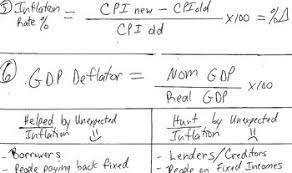 ⑤ Inflation Rate % = CPI new - CPI old / CPI old x100 = %Δ
⑥ GDP Deflator = Nom GDP / Real GDP x100
Helped by Unexpected Inflation
Hurt by Unexpected Inflation
- Borrowers
- People paying back fixed
- Lenders/Creditors
- People on Fixed Incomes